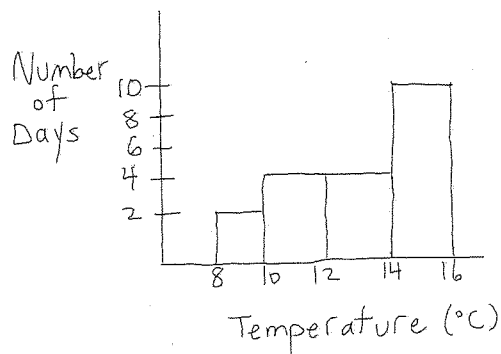 Number
of
Days
10
8
6
4
2
8 10 12 14 16
Temperature (°C)